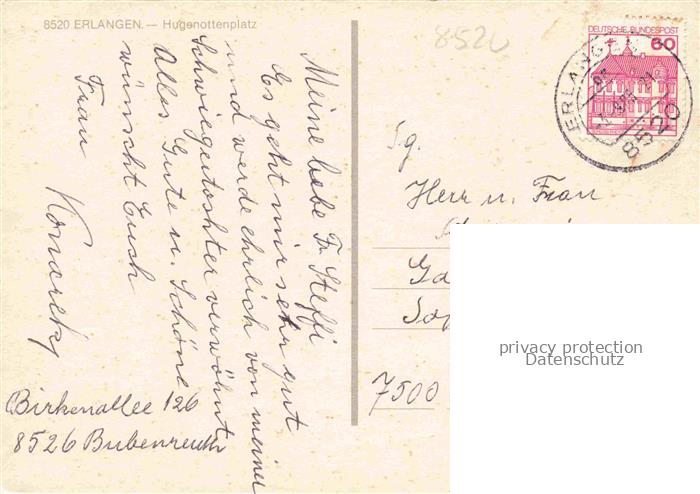 8520 ERLANGEN. — Hugenottenplatz
8520
DEUTSCHE BUNDESPOST
60
ERLANGEN
8520
Meine liebe Fr. Steffi
Es geht mir sehr gut
und werde ehrlich von meiner
Schwiegertochter verwöhnt
Alles Gute u. Schöne
wünscht Euch
Frau
Birkenallee 126
8526 Bubenreuth
Sg.
Herr u. Frau
Ga
7500
privacy protection
Datenschutz